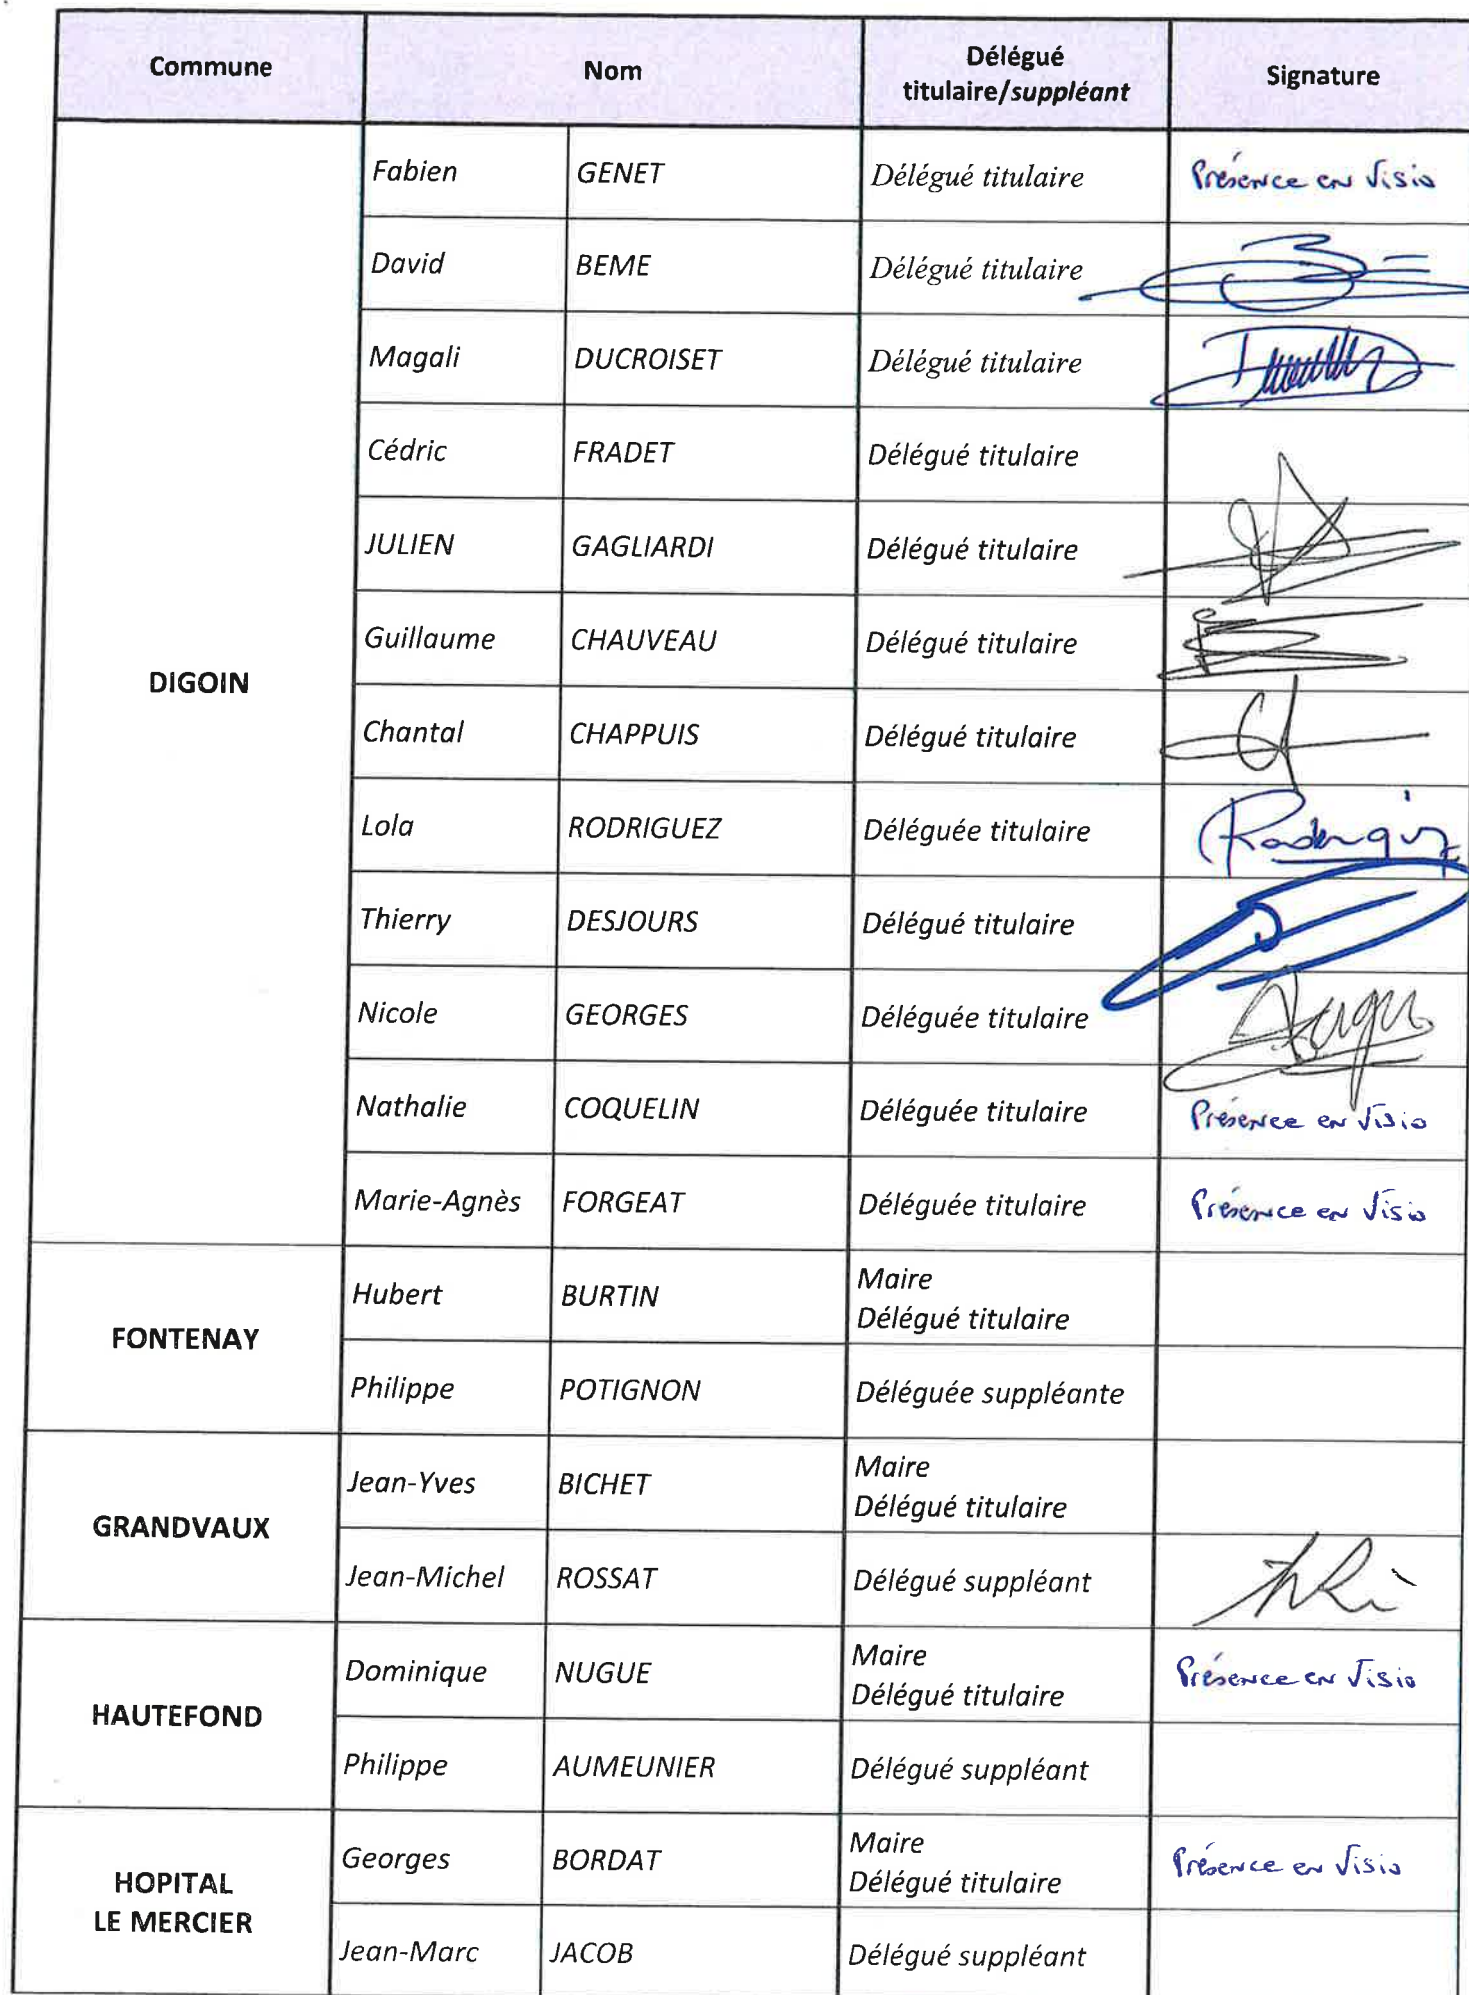 Commune Nom Délégué titulaire/suppléant Signature
DIGOIN
Fabien GENET Délégué titulaire Présence en Visio
David BEME Délégué titulaire
Magali DUCROISET Délégué titulaire
Cédric FRADET Délégué titulaire
JULIEN GAGLIARDI Délégué titulaire
Guillaume CHAUVEAU Délégué titulaire
Chantal CHAPPUIS Délégué titulaire
Lola RODRIGUEZ Déléguée titulaire Rodriguez
Thierry DESJOURS Délégué titulaire
Nicole GEORGES Déléguée titulaire
Nathalie COQUELIN Déléguée titulaire Présence en Visio
Marie-Agnès FORGEAT Déléguée titulaire Présence en Visio
FONTENAY
Hubert BURTIN Maire
Délégué titulaire
Philippe POTIGNON Déléguée suppléante
GRANDVAUX
Jean-Yves BICHET Maire
Délégué titulaire
Jean-Michel ROSSAT Délégué suppléant
HAUTEFOND
Dominique NUGUE Maire
Délégué titulaire Présence en Visio
Philippe AUMEUNIER Délégué suppléant
HOPITAL
LE MERCIER
Georges BORDAT Maire
Délégué titulaire Présence en Visio
Jean-Marc JACOB Délégué suppléant